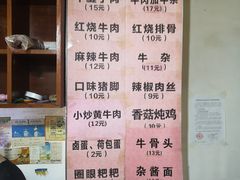 牛腩牛肉 牛肉加牛杂
（15元） （17元）
红烧牛肉 红烧排骨
（10元） （10元）
麻辣牛肉 牛杂
（12元） （11元）
口味猪脚 辣椒肉丝
（10元） （9元）
小炒黄牛肉 香菇炖鸡
（12元） （10元）
卤蛋、荷包蛋 牛骨头
（2元） （13元）
圈眼粑粑 杂酱面